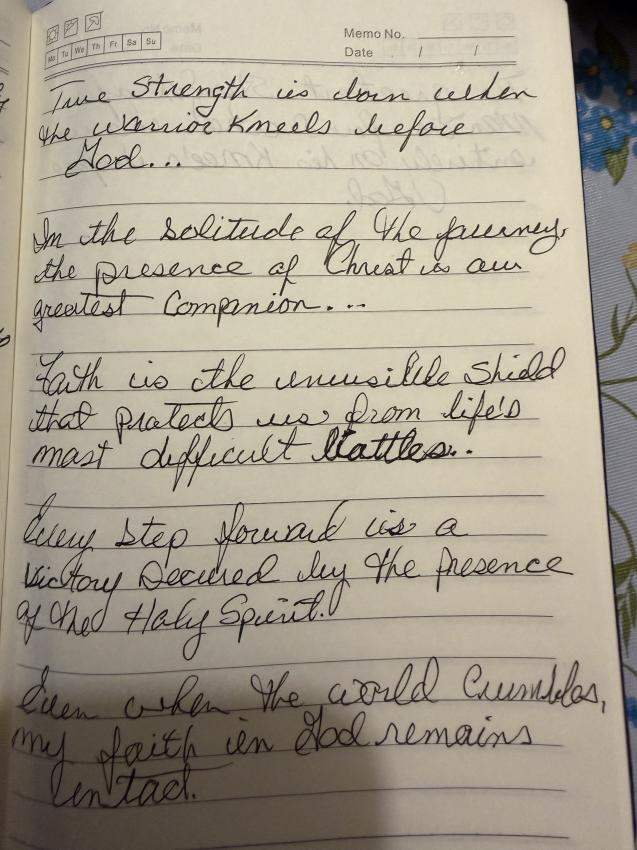 Memo No.
Mo Tu We Th Fr Sa Su
Date / /
True Strength is born when
the warrior Kneels before
God...
In the solitude of the journey,
the presence of Christ is our
greatest Companion...
Faith is the invisible Shield
that protects us from life's
most difficult battles..
Every step forward is a
victory secured by the presence
of the Holy Spirit.
Even when the world Crumbles,
my faith in God remains
intact.